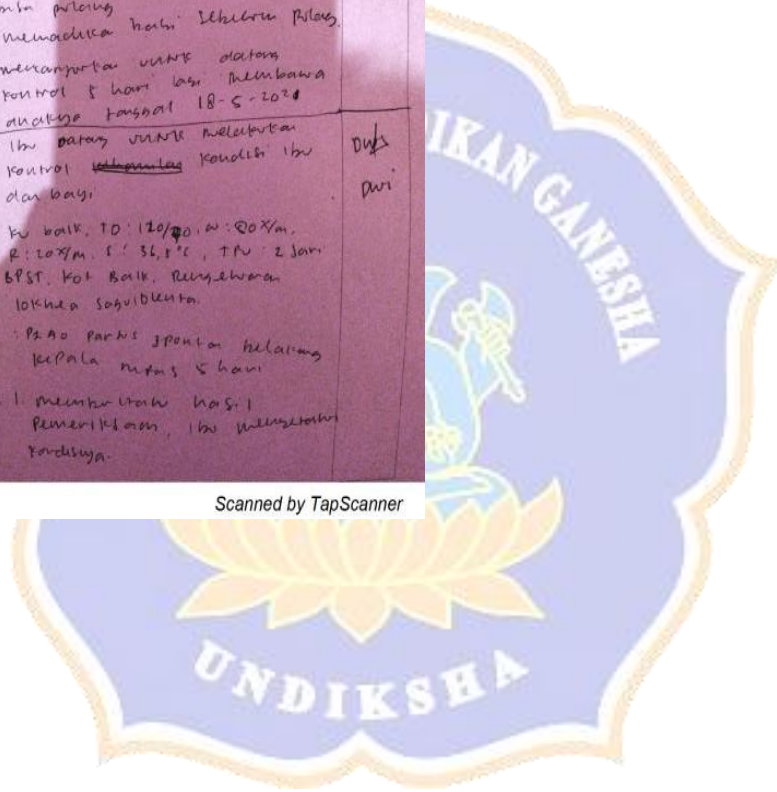 pulang
memastikan bayi sebelum pulang.
menganjurkan untuk datang
kontrol 5 hari lagi membawa
anaknya tanggal 18-5-2021
Ibu datang untuk melakukan
kontrol kondisi ibu
dan bayi
Dwi
Ku baik, TD: 120/80, N: 80x/m,
R: 20x/m, S: 36,5°C, TFU: 2 Jari
BPST, Kot Baik, Pengeluaran
lokhea
: P2A0 Partus Spontan belakang
kepala nifas 5 hari
1. memberitahu hasil
Pemeriksaan, ibu mengetahui
kondisinya.
Scanned by TapScanner
DIKAN GANESHA
UNDIKSHA